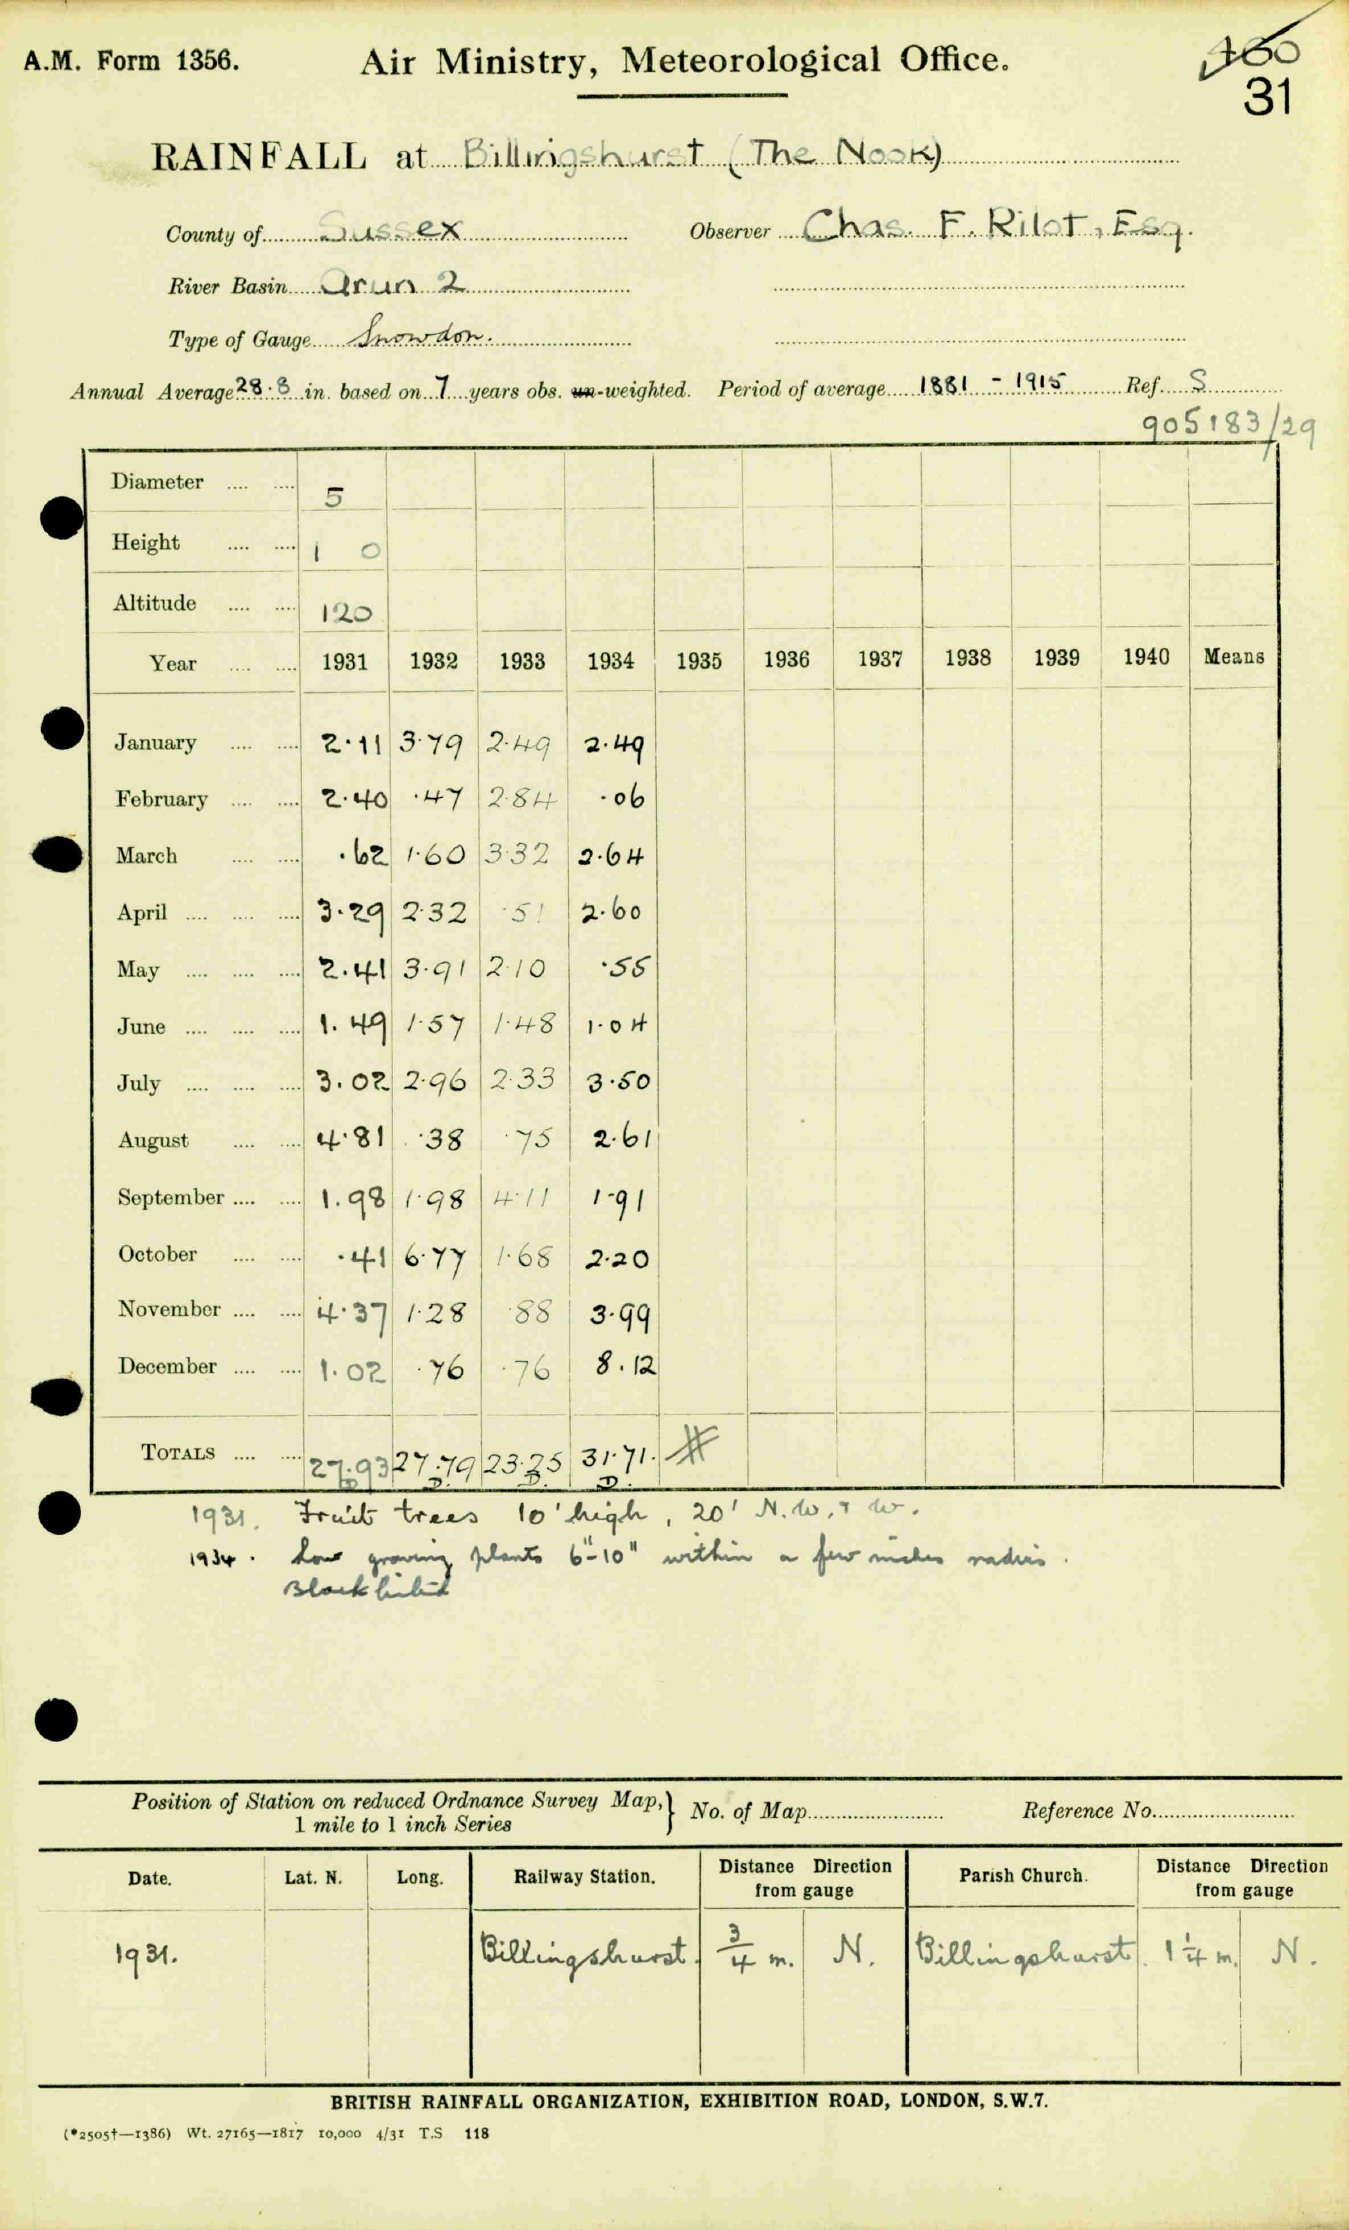 A.M. Form 1356. Air Ministry, Meteorological Office. 160
31
RAINFALL at Billingshurst (The Nook)
County of Sussex Observer Chas. F. Rilot, Esq.
River Basin Arun 2
Type of Gauge Snowdon.
Annual Average 28.8 in. based on 7 years obs. un-weighted. Period of average 1881 - 1915 Ref. S
905183/29
Diameter .... .... 5
Height .... .... 1 0
Altitude .... .... 120
Year .... .... 1931 1932 1933 1934 1935 1936 1937 1938 1939 1940 Means
January .... .... 2.11 3.79 2.49 2.49
February .... .... 2.40 .47 2.84 .06
March .... .... .62 1.60 3.32 2.64
April .... .... .... 3.29 2.32 .51 2.60
May .... .... .... 2.41 3.91 2.10 .55
June .... .... .... 1.49 1.57 1.48 1.04
July .... .... .... 3.02 2.96 2.33 3.50
August .... .... 4.81 .38 .75 2.61
September .... .... 1.98 1.98 4.11 1.91
October .... .... .41 6.77 1.68 2.20
November .... .... 4.37 1.28 .88 3.99
December .... .... 1.02 .76 .76 8.12
TOTALS .... .... 27.93 27.79 23.25 31.71.
D D. D. D.
1931. Fruit trees 10' high, 20' N.W. & W.
1934. Low growing plants 6"-10" within a few inches radius.
Position of Station on reduced Ordnance Survey Map, } No. of Map Reference No.
1 mile to 1 inch Series
Date. Lat. N. Long. Railway Station. Distance Direction from gauge Parish Church. Distance Direction from gauge
1931. Billingshurst. 3/4 m. N. Billingshurst. 1 1/4 m. N.
BRITISH RAINFALL ORGANIZATION, EXHIBITION ROAD, LONDON, S.W.7.
(*2505†—1386) Wt. 27165—1817 10,000 4/31 T.S 118